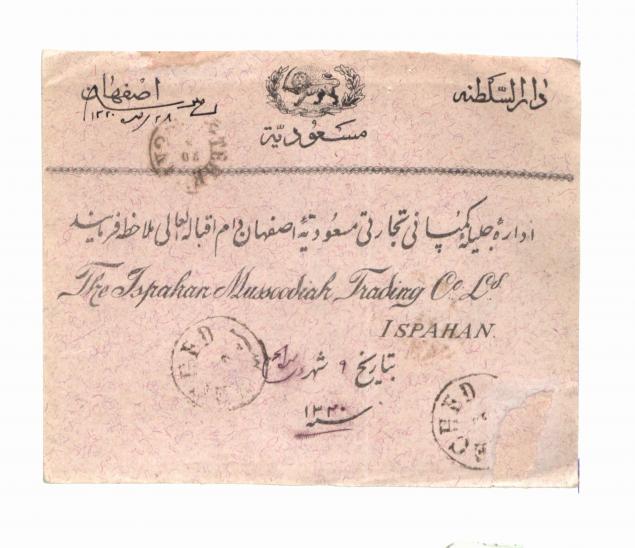 دارالسلطنه
اصفهان
مسعودیّة
۱۳۲۰
TEHERAN
اداره جلیلۀ کمپانی تجارتی مسعودیۀ اصفهان دام اقباله العالی ملاحظه فرمایند
The Ispahan Mussoodiah Trading Co. Ld.
ISPAHAN.
بتاریخ ۹ شهر
سنه ۱۳۲۰
MECHED
MECHED